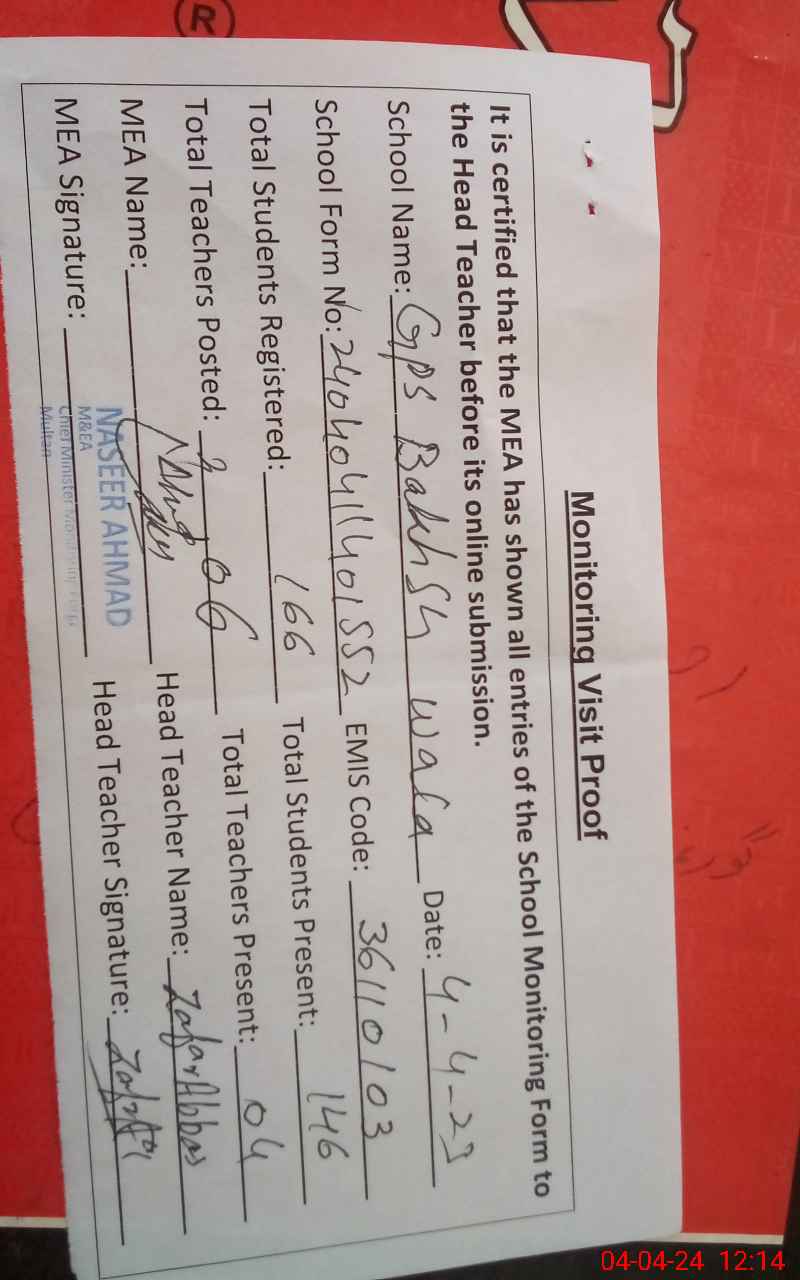 Monitoring Visit Proof
It is certified that the MEA has shown all entries of the School Monitoring Form to
the Head Teacher before its online submission.
School Name: GPS Bakhsh wala Date: 4-4-23
School Form No: 2404041401552 EMIS Code: 36110103
Total Students Registered: 166 Total Students Present: 146
Total Teachers Posted: 06 Total Teachers Present: 04
MEA Name: Head Teacher Name: Zafar Abbas
NASEER AHMAD
MEA Signature: Head Teacher Signature:
M&EA
Chief Minister Monitoring Force
Multan
R
04-04-24 12:14